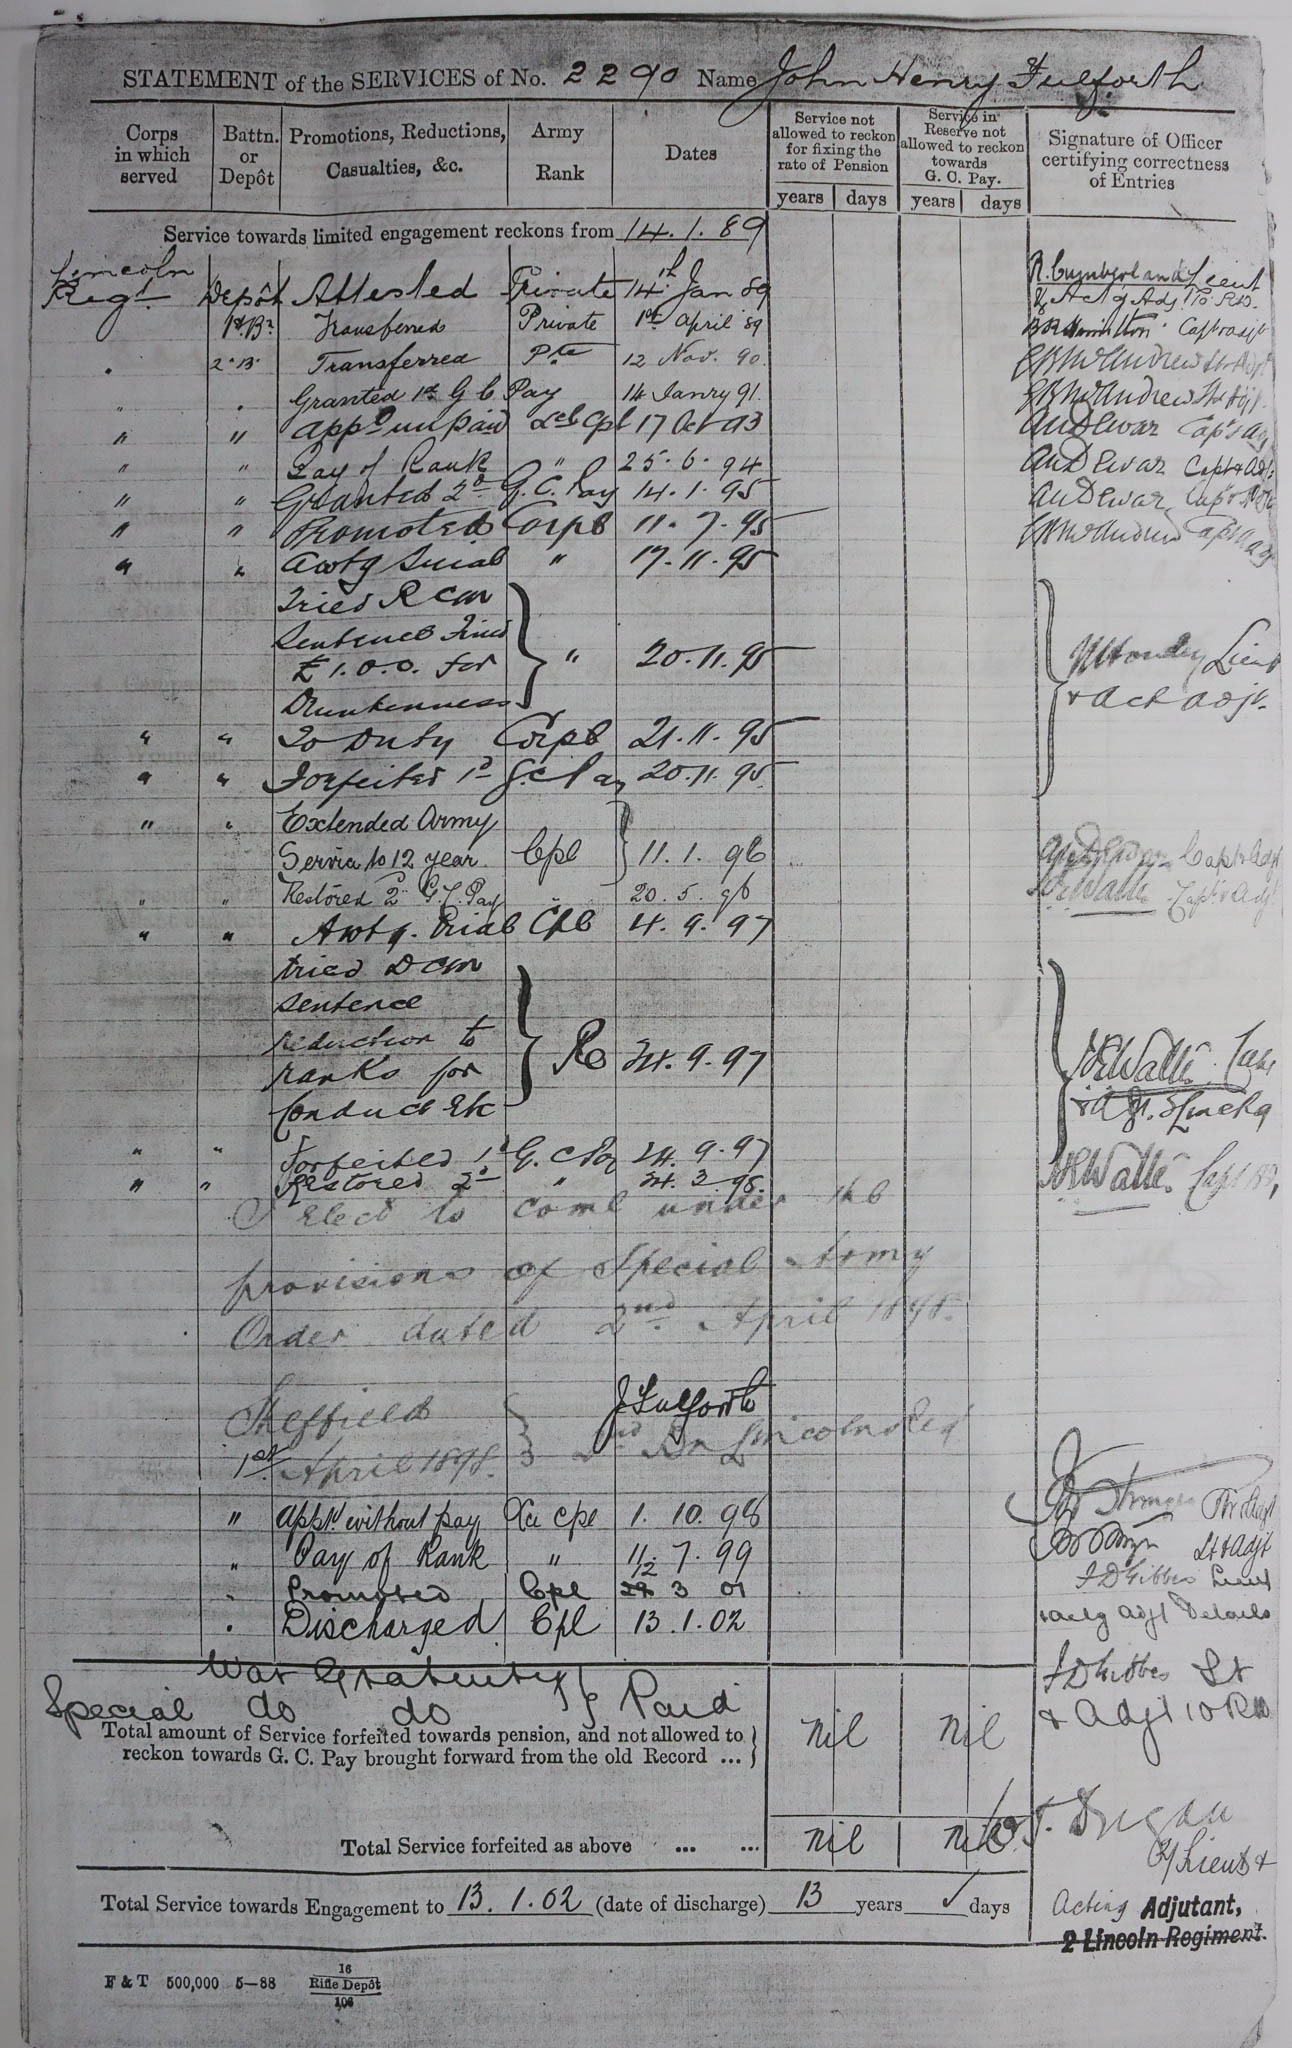 STATEMENT of the SERVICES of No. 2290 Name John Henry Fulforth
Corps in which served
Battn. or Depôt
Promotions, Reductions, Casualties, &c.
Army Rank
Dates
Service not allowed to reckon for fixing the rate of Pension
Service in Reserve not allowed to reckon towards G. C. Pay.
Signature of Officer certifying correctness of Entries
years days years days
Service towards limited engagement reckons from 14.1.89
Lincoln Regt Depôt Attested Private 14th Jan 89 R. Cumberland Lieut
1st Bn Transferred Private 1st April 89 Hamilton Capt & Adjt
" 2 Bn Transferred Pte 12 Nov. 90 McAndrew
" " Granted 1st G C Pay 14 Janry 91. McAndrew
" " Appd unpaid Lce Cpl 17 Oct 93 Dewar Capt & Adj
" " Pay of Rank " 25.6.94 Dewar Capt & Adj
" " Granted 2d G.C. Pay 14.1.95 Dewar Capt & Adj
" " Promoted Corpl 11.7.95 McAndrew Capt & Adj
" " Awtg Trial " 17.11.95
Tried R C M
Sentence Fined
£1.0.0. for " 20.11.95 Lieut
Drunkenness & Act Adjt.
" " To Duty Corpl 21.11.95
" " Forfeited 1d G.C Pay 20.11.95
" " Extended Army
Service to 12 year Cpl 11.1.96 Dewar Capt & Adjt
" " Restored 2d G.C. Pay " 20.5.96 Capt & Adjt
" " Awtg. Trial Cpl 4.9.97
tried D C M
sentence
reduction to
ranks for 24.9.97
Conduct Etc
" " Forfeited 1d G.C Pay 24.9.97
" " Restored 2d " 24.3.98.
I elect to come under the
provisions of Special Army
Order dated 2nd April 1898.
J Fulforth
Sheffield
1st April 1898. 2nd Bn Lincoln Reg
" Apptd. without pay Lce Cpl 1.10.98
" Pay of Rank " 11/12.7.99 Lt & Adjt
" Promoted Cpl 3 01 Gibbes Lieut
" Discharged Cpl 13.1.02 & Actg Adjt Details
War Gratuity
Special do do } Paid
Gibbes Lt
& Adjt
Total amount of Service forfeited towards pension, and not allowed to
reckon towards G. C. Pay brought forward from the old Record ... } Nil Nil
Total Service forfeited as above ... ... Nil Nil
Lieut &
Total Service towards Engagement to 13.1.02 (date of discharge) 13 years days
Acting Adjutant,
2 Lincoln Regiment.
F & T 500,000 5—88
16
Rifle Depôt
106